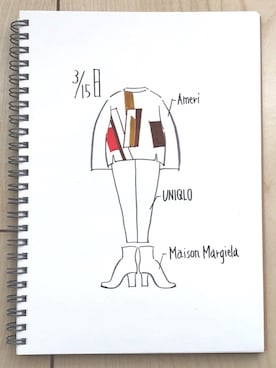 3/15日
Ameri
UNIQLO
Maison Margiela